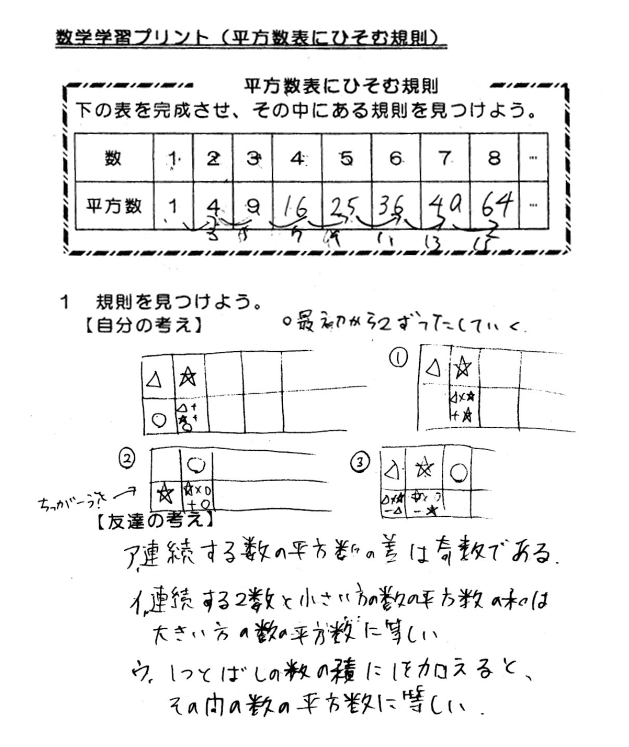 数学学習プリント（平方数表にひそむ規則）
平方数表にひそむ規則
下の表を完成させ、その中にある規則を見つけよう。
数 1 2 3 4 5 6 7 8 …
平方数 1 4 9 16 25 36 49 64 …
3 5 7 9 11 13 15
1 規則を見つけよう。
【自分の考え】 ○最初から2ずつたしていく.
△ ☆
○ △+☆+○
① △ ☆
△×☆+☆
② ○
☆ ☆×○+○
③ △ ☆ ○
△×☆-△ ☆×○-☆
ちっがーう!!
【友達の考え】
ア.連続する数の平方数の差は奇数である.
イ.連続する2数と小さい方の数の平方数の和は
大きい方の数の平方数に等しい
ウ.1つとばしの数の積に1を加えると、
その間の数の平方数に等しい.